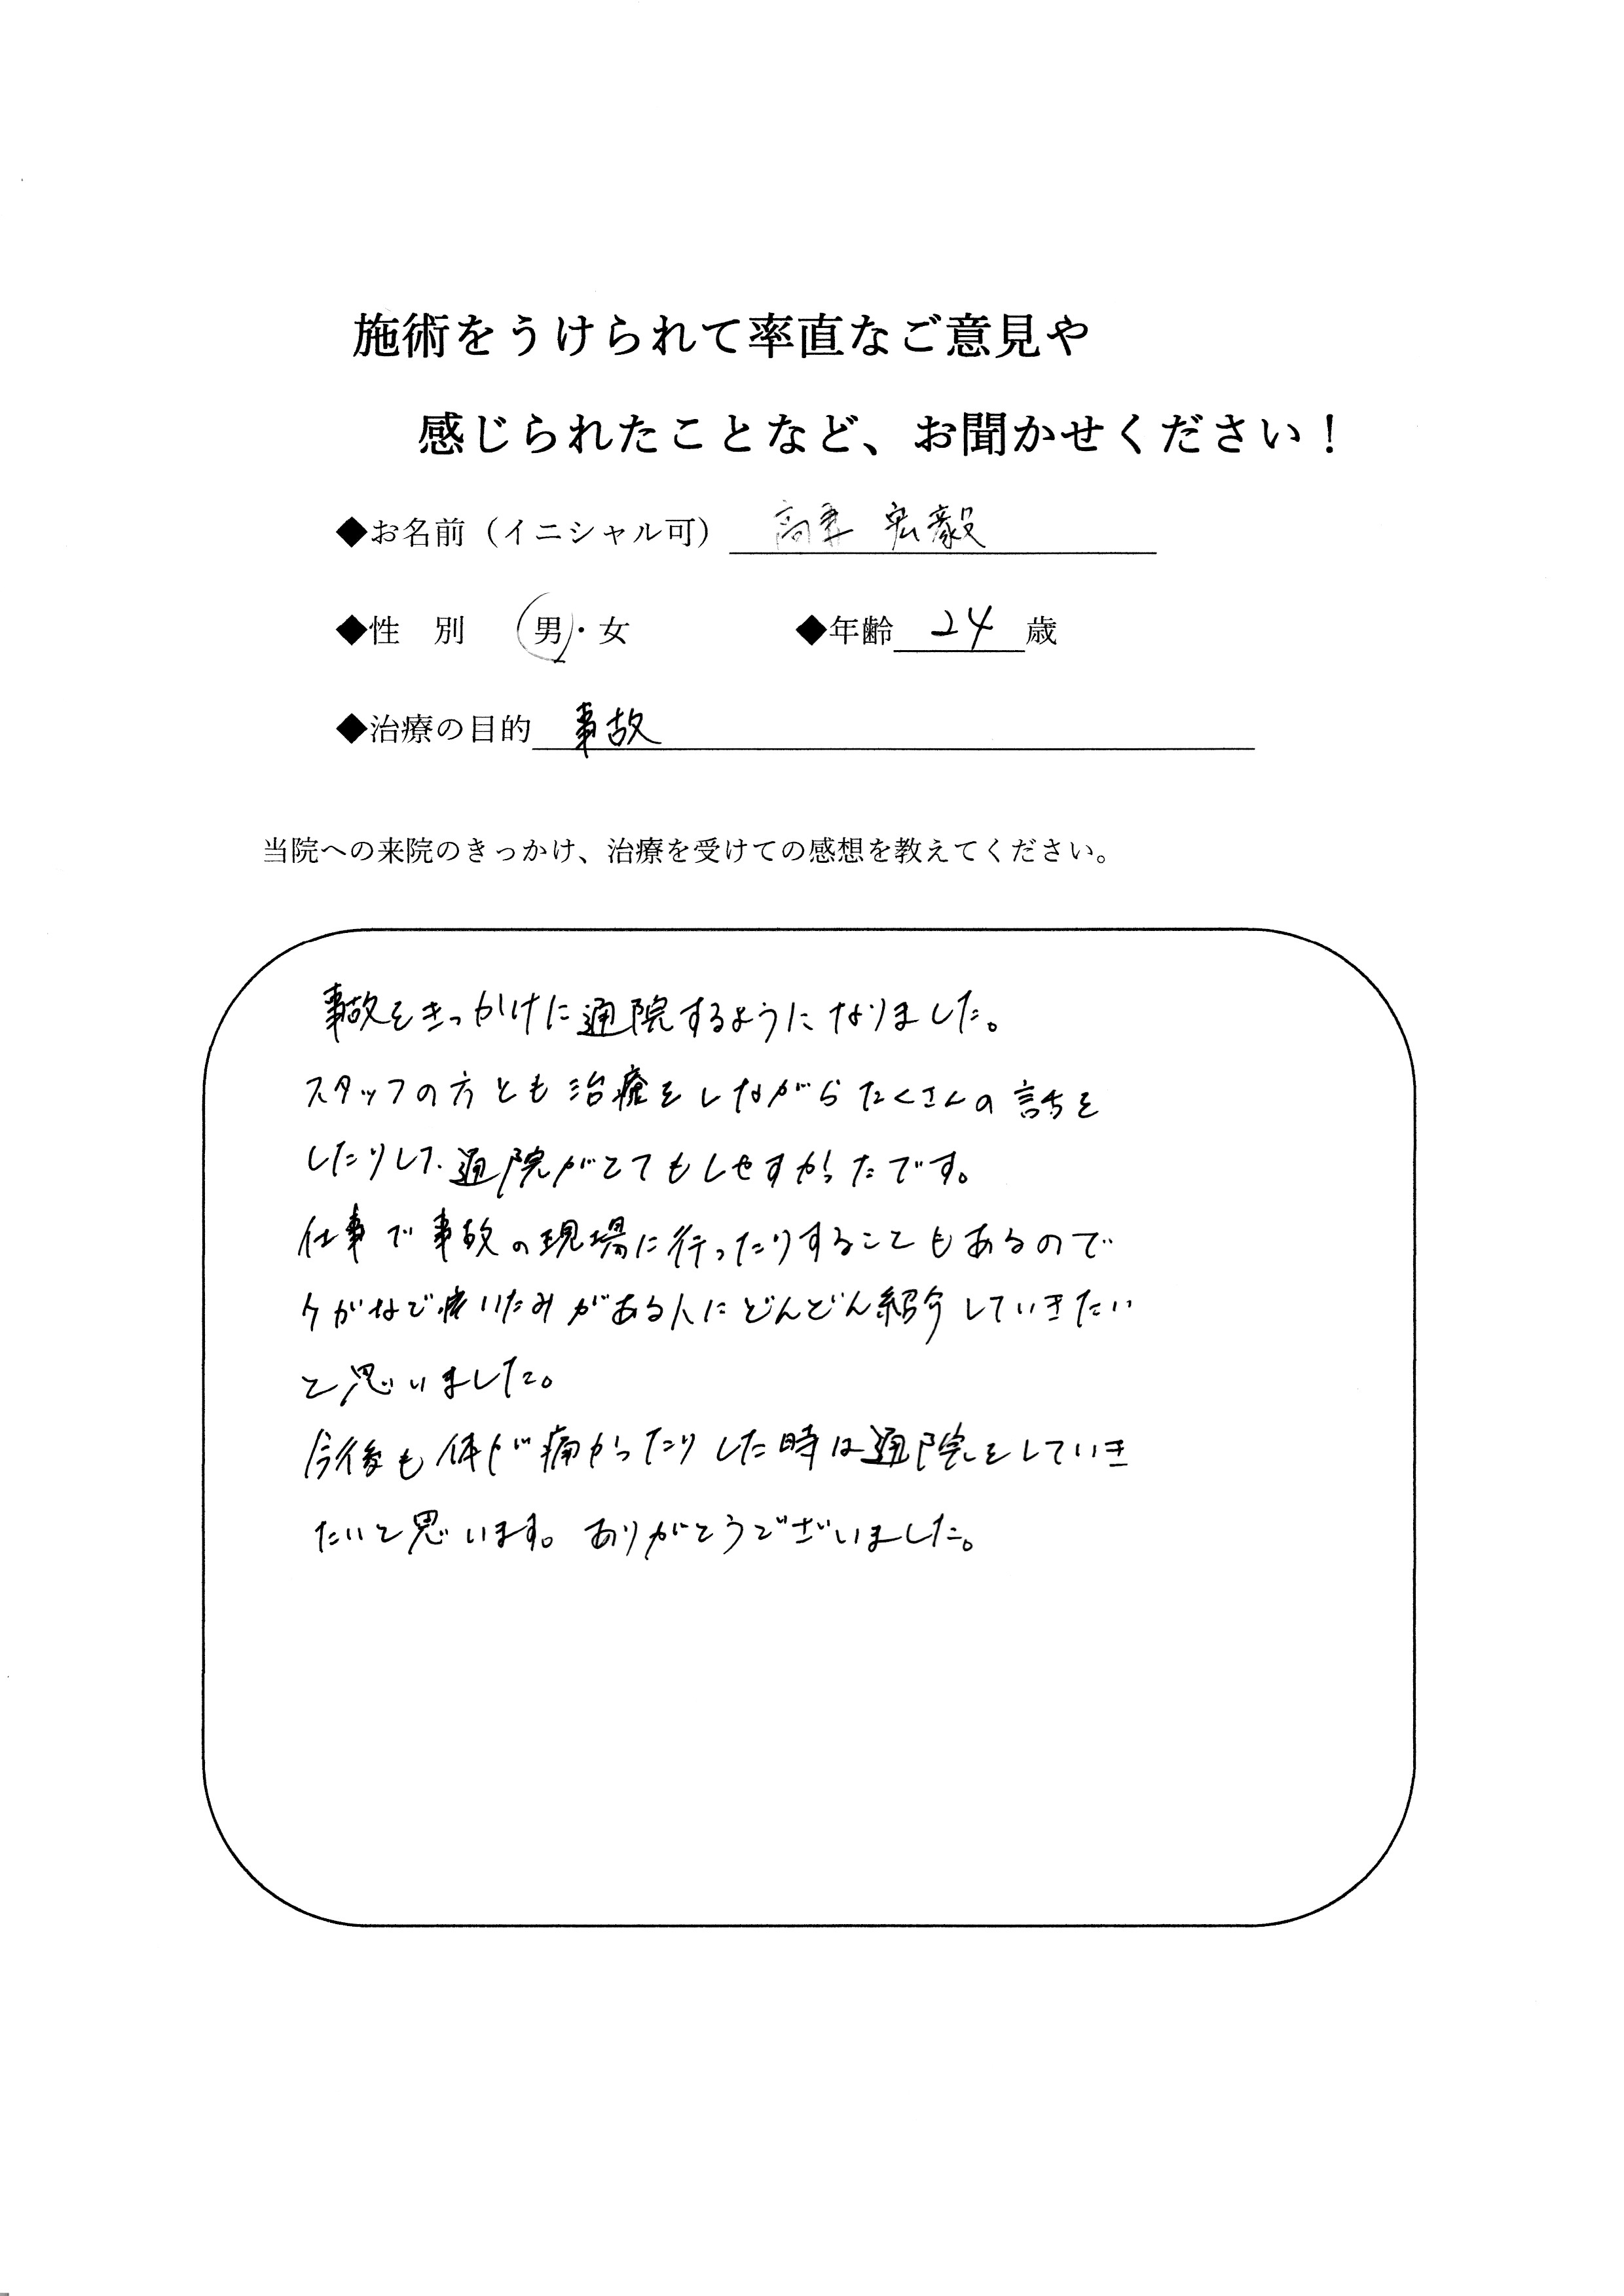 施術をうけられて率直なご意見や
感じられたことなど、お聞かせください！
◆お名前（イニシャル可） 高妻 宏毅
◆性 別 男・女 ◆年齢 24 歳
◆治療の目的 事故
当院への来院のきっかけ、治療を受けての感想を教えてください。
事故をきっかけに通院するようになりました。
スタッフの方とも治療をしながらたくさんの話を
したりして、通院がとてもしやすかったです。
仕事で事故の現場に行ったりすることもあるので
ケガなどでいたみがある人にどんどん紹介していきたい
と思いました。
今後も体が痛かったりした時は通院をしていき
たいと思います。ありがとうございました。